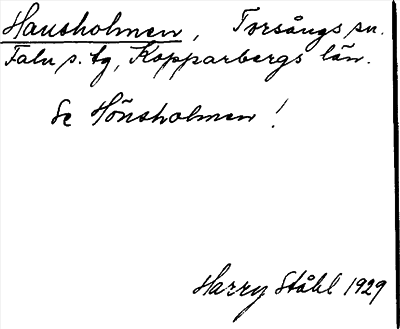 Hausholmen, Torsångs sn.
Falu s. tg, Kopparbergs län.
Se Hönsholmen!
Harry Ståhl 1929